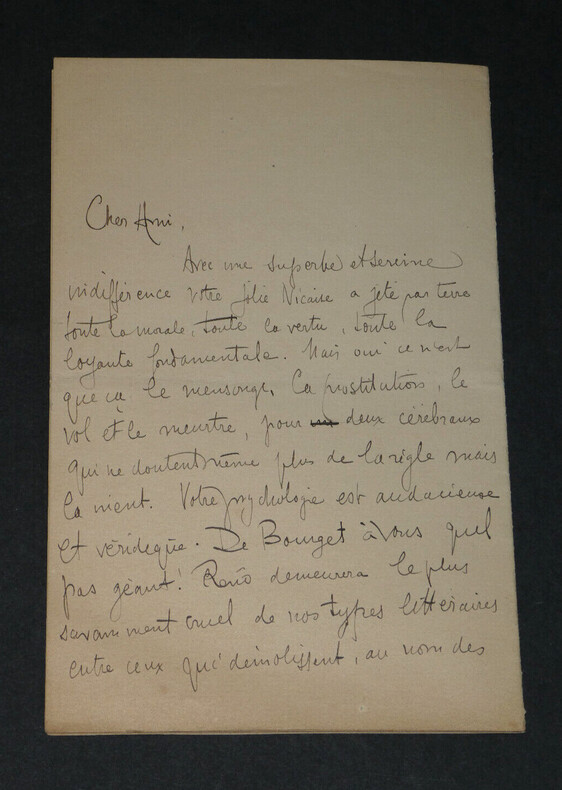 Cher Ami,
Avec une superbe et sereine
indifférence votre jolie Nicaise a jeté par terre
toute la morale, toute la vertu, toute la
loyauté fondamentale. Mais oui ce n'est
que ça le mensonge, la prostitution, le
vol et le meurtre, pour deux cérébraux
qui ne doutent même plus de la règle mais
la nient. Votre psychologie est audacieuse
et véridique. De Bourget à Vous quel
pas géant! demeurera le plus
savamment cruel de nos types littéraires
entre ceux qui démolissent, au nom des